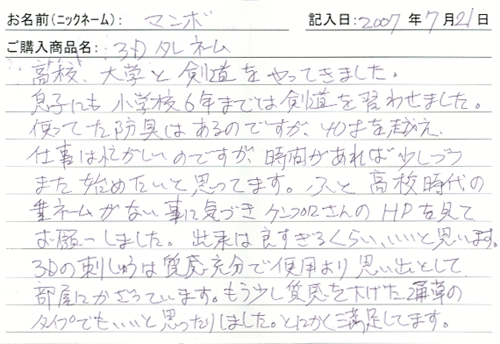 お名前(ニックネーム): マンボ 記入日: 2007 年 7 月 21 日
ご購入商品名: 3Dタレネーム
高校、大学と剣道をやってきました。
息子にも小学校6年までは剣道を習わせました。
使ってた防具はあるのですが、40才を越え、
仕事は忙がしいのですが、時間があれば少しづつ
また始めたいと思ってます。ふと高校時代の
垂ネームがない事に気づきケンプロさんのHPを見て
お願いしました。出来は良すぎるくらい、いいと思います。
3Dの刺しゅうは質感充分で使用より思い出として
部屋にかざっています。もう少し質感を下げた
タイプでもいいと思ったりしました。とにかく満足してます。